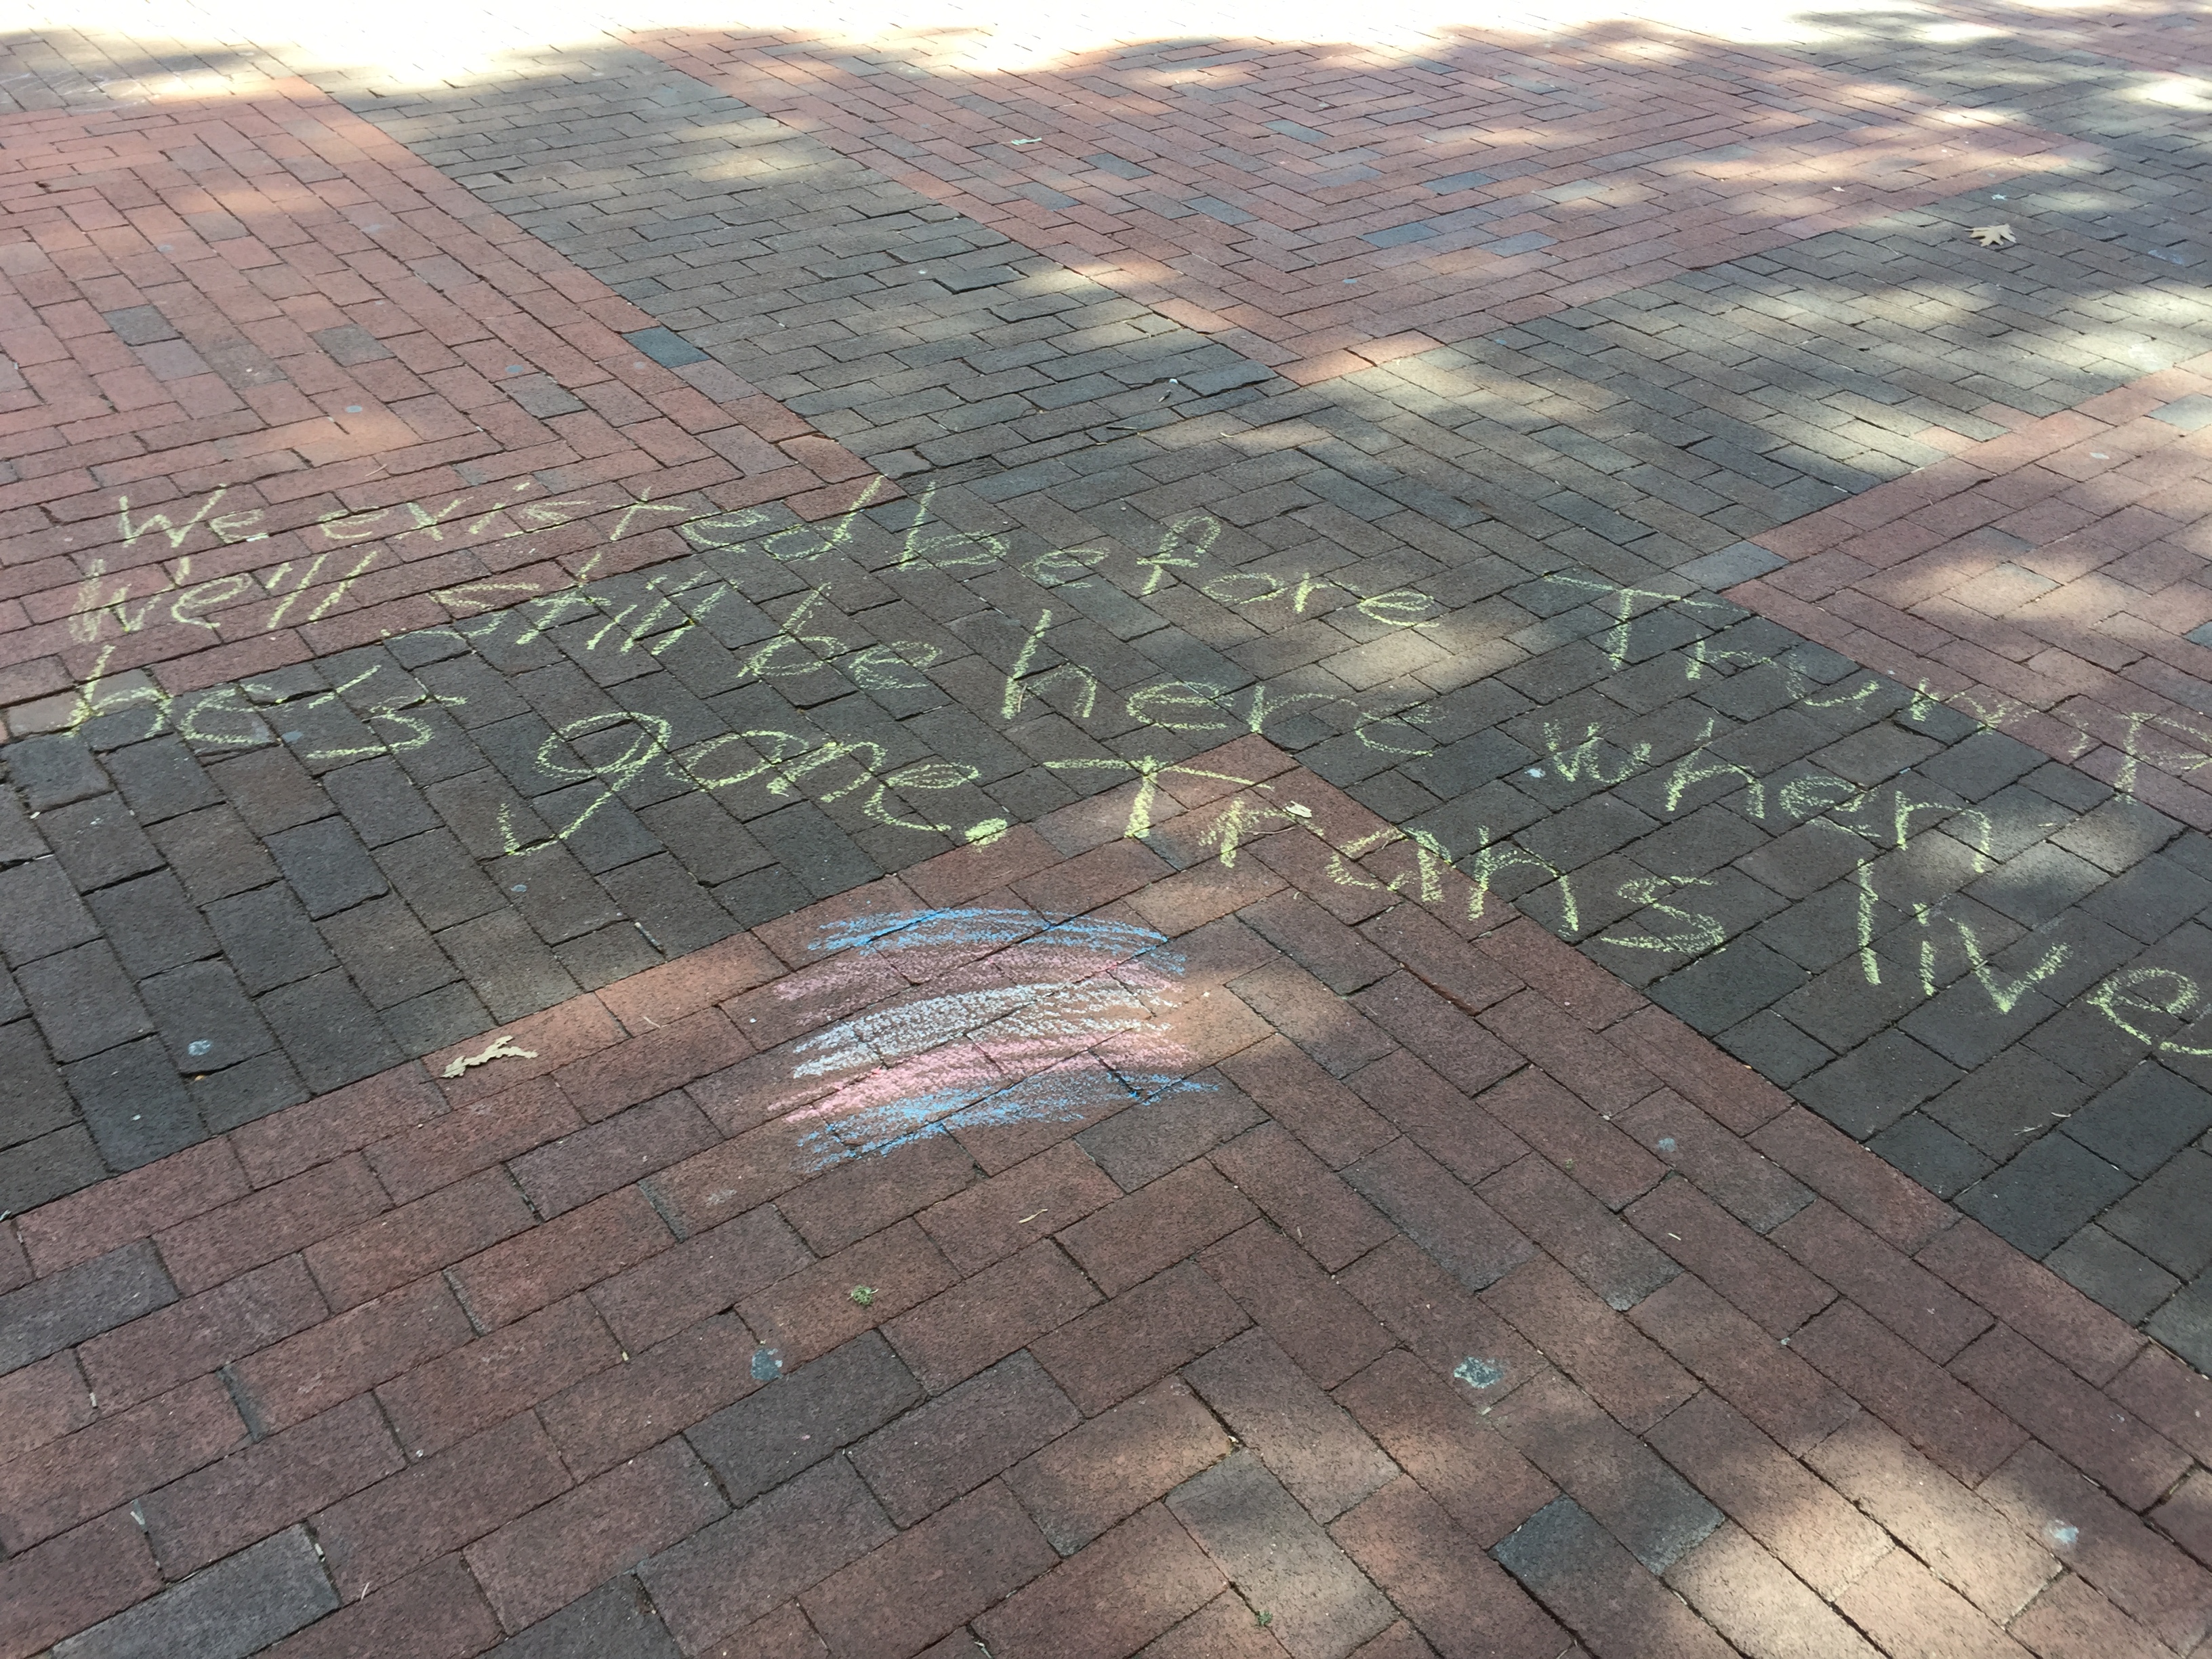 We existed before Trump
We'll still be here when
he's gone. Trans live